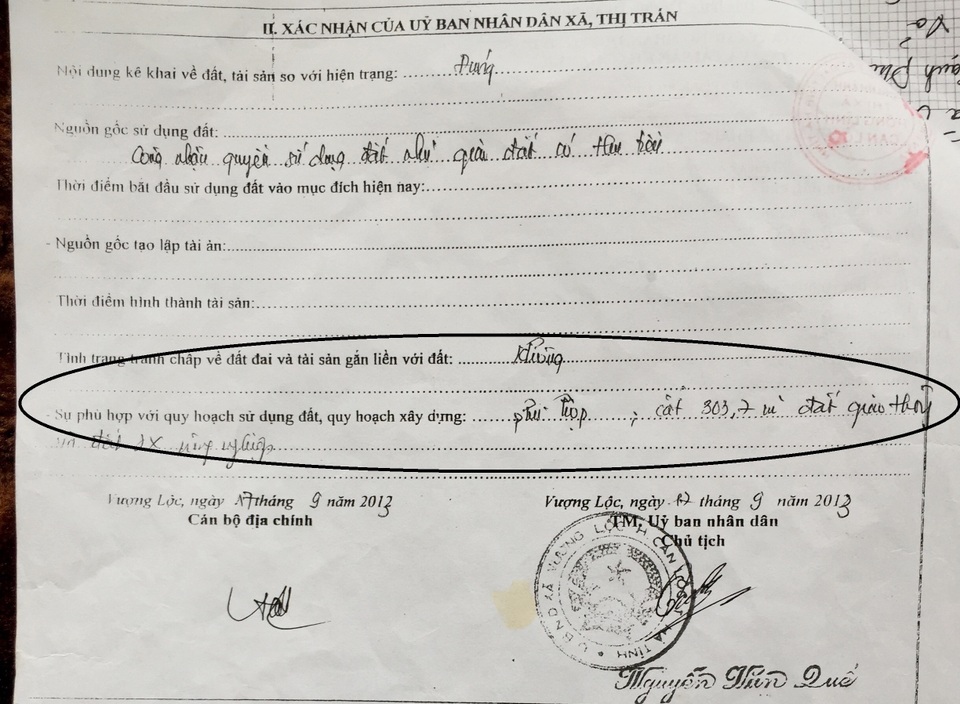 II. XÁC NHẬN CỦA UỶ BAN NHÂN DÂN XÃ, THỊ TRẤN
Nội dung kê khai về đất, tài sản so với hiện trạng: Đúng
Nguồn gốc sử dụng đất:
Công nhận quyền sử dụng đất như giao đất có thu tiền
Thời điểm bắt đầu sử dụng đất vào mục đích hiện nay:
- Nguồn gốc tạo lập tài ản:
Thời điểm hình thành tài sản:
Tình trạng tranh chấp về đất đai và tài sản gắn liền với đất: Không
- Sự phù hợp với quy hoạch sử dụng đất, quy hoạch xây dựng: phù hợp, cắt 303,7 m đất giao thông
đất SX nông nghiệp
Vượng Lộc, ngày 17 tháng 9 năm 2013
Cán bộ địa chính
Vượng Lộc, ngày 17 tháng 9 năm 2013
TM, Uỷ ban nhân dân
Chủ tịch
U.B.N.D XÃ VƯỢNG LỘC H CAN LỘC HÀ TĨNH
Nguyễn Văn Quế